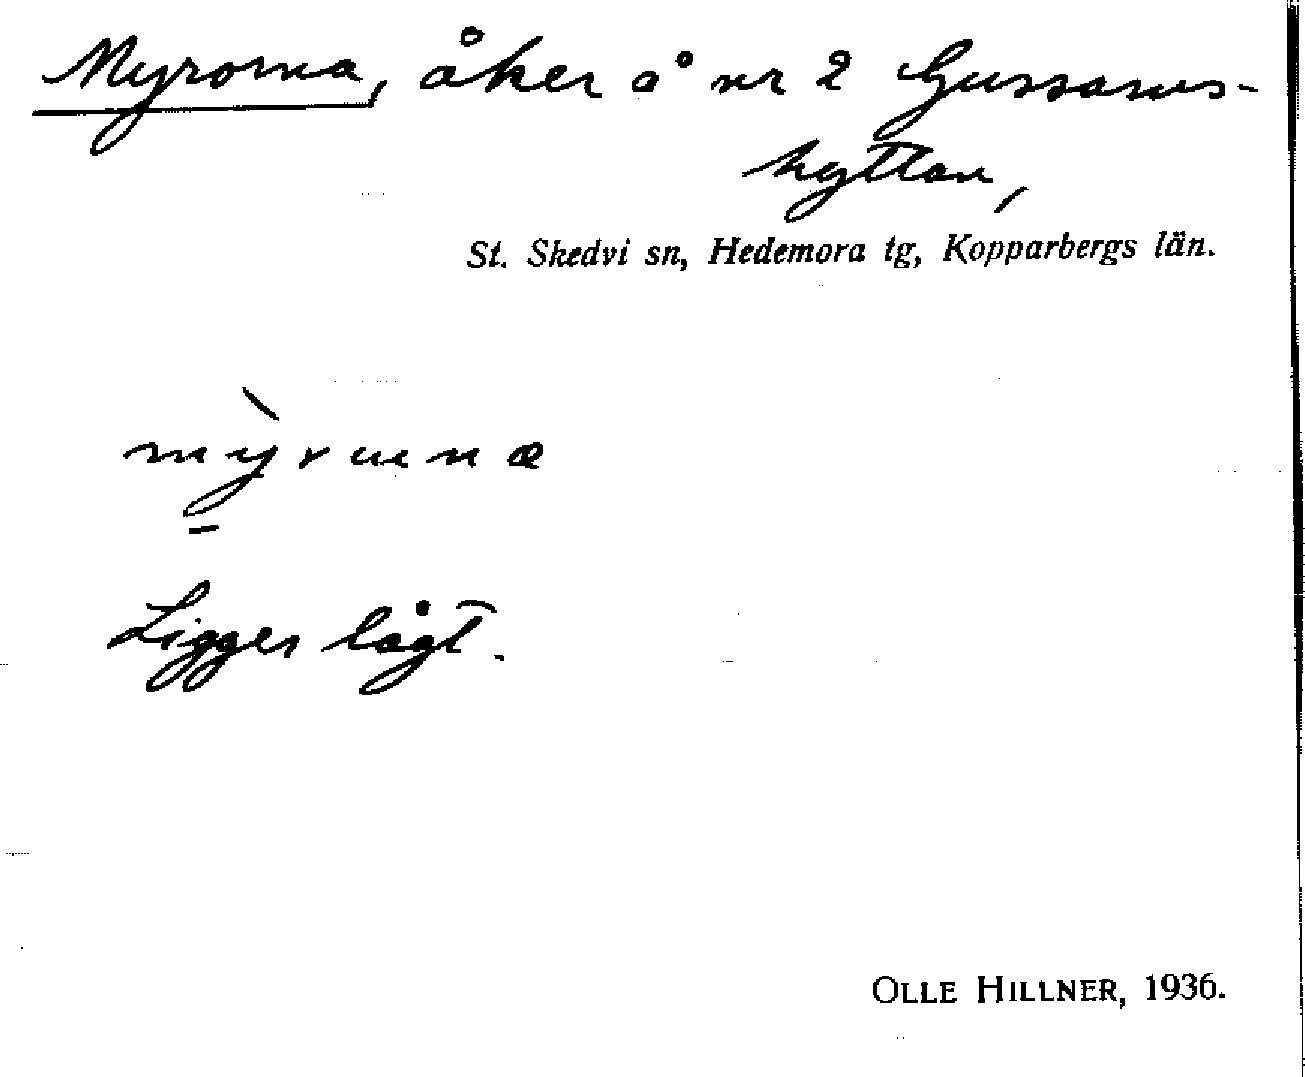 Myrorna, åker å nr 2 Gussarvs-
hyttan,
St. Skedvi sn, Hedemora tg, Kopparbergs län.
mỳ̠runa
Ligger lågt.
OLLE HILLNER, 1936.